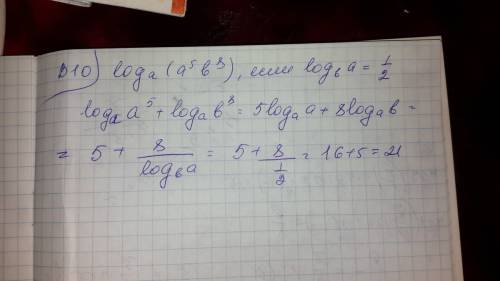 B10) logₐ(a⁵b⁸), если log_b a = 1/2
logₐa⁵ + logₐb⁸ = 5logₐa + 8logₐb =
= 5 + 8/log_b a = 5 + 8/(1/2) = 16+5 = 21